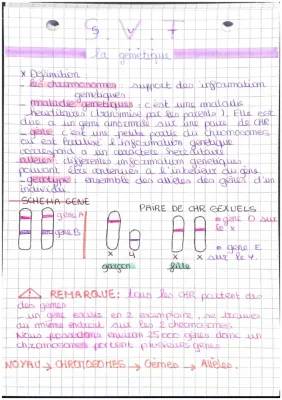 S V T
la génétique
x Definition
- les chromosomes : support des information
génétiques
- maladie genetiques : c'est une maladie
héréditaire (transmise par les parents). Elle est
due a un gène anormale sur une paire de CHR
- gène : c'est une petite partie du chromosomes
ou est localisé l'information génétique
correspond a un caractère héréditaire
alleles : differentes information genetiques
pouvant être contenues a l'intérieur du gène
- genotype : ensemble des alleles des gènes d'un
individu
SCHEMA GENE
PAIRE DE CHR SEXUELS
gène A
gène B
x y
garçon
x x
fille
gène D sur
le x
gène E
sur le y.
REMARQUE : tous les CHR portent des
des gènes
un gène existe en 2 exemplaire, se trouve
au même endroit sur les 2 chromosomes.
Nous possédons environ 25000 gènes donc un
chromosomes portent plusieurs gènes
NOYAU → CHROMOSOMES → Gènes → Alleles.